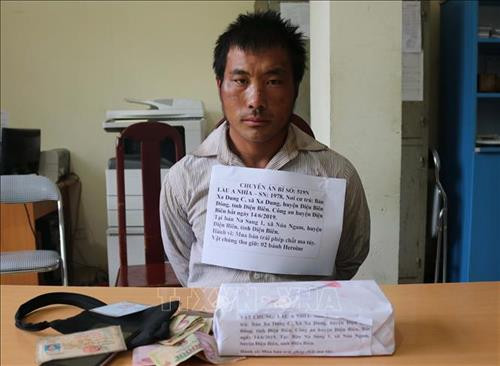 CHUYÊN ÁN BÍ SỐ: 519N
LẦU A NHÌA - SN: 1978, Nơi cư trú: Bản
Xa Dung C, xã Xa Dung, huyện Điện Biên
Đông, tỉnh Điện Biên. Công an huyện Điện
Biên bắt ngày 14/6/2019.
Tại bản Na Sang 1, xã Núa Ngam, huyện
Điện Biên, tỉnh Điện Biên.
Hành vi: Mua bán trái phép chất ma túy.
Vật chứng thu giữ: 02 bánh Heroine
TTXVN
VẬT CHỨNG: LẦU A NHÌA - SN: 1978, Nơi cư
trú: Bản Xa Dung C, xã Xa Dung, huyện Điện Biên
14/6/2019. Tại bản Na Sang 1, xã Núa Ngam,
huyện Điện Biên, tỉnh Điện Biên
Hành vi: Mua bán trái phép chất ma túy.